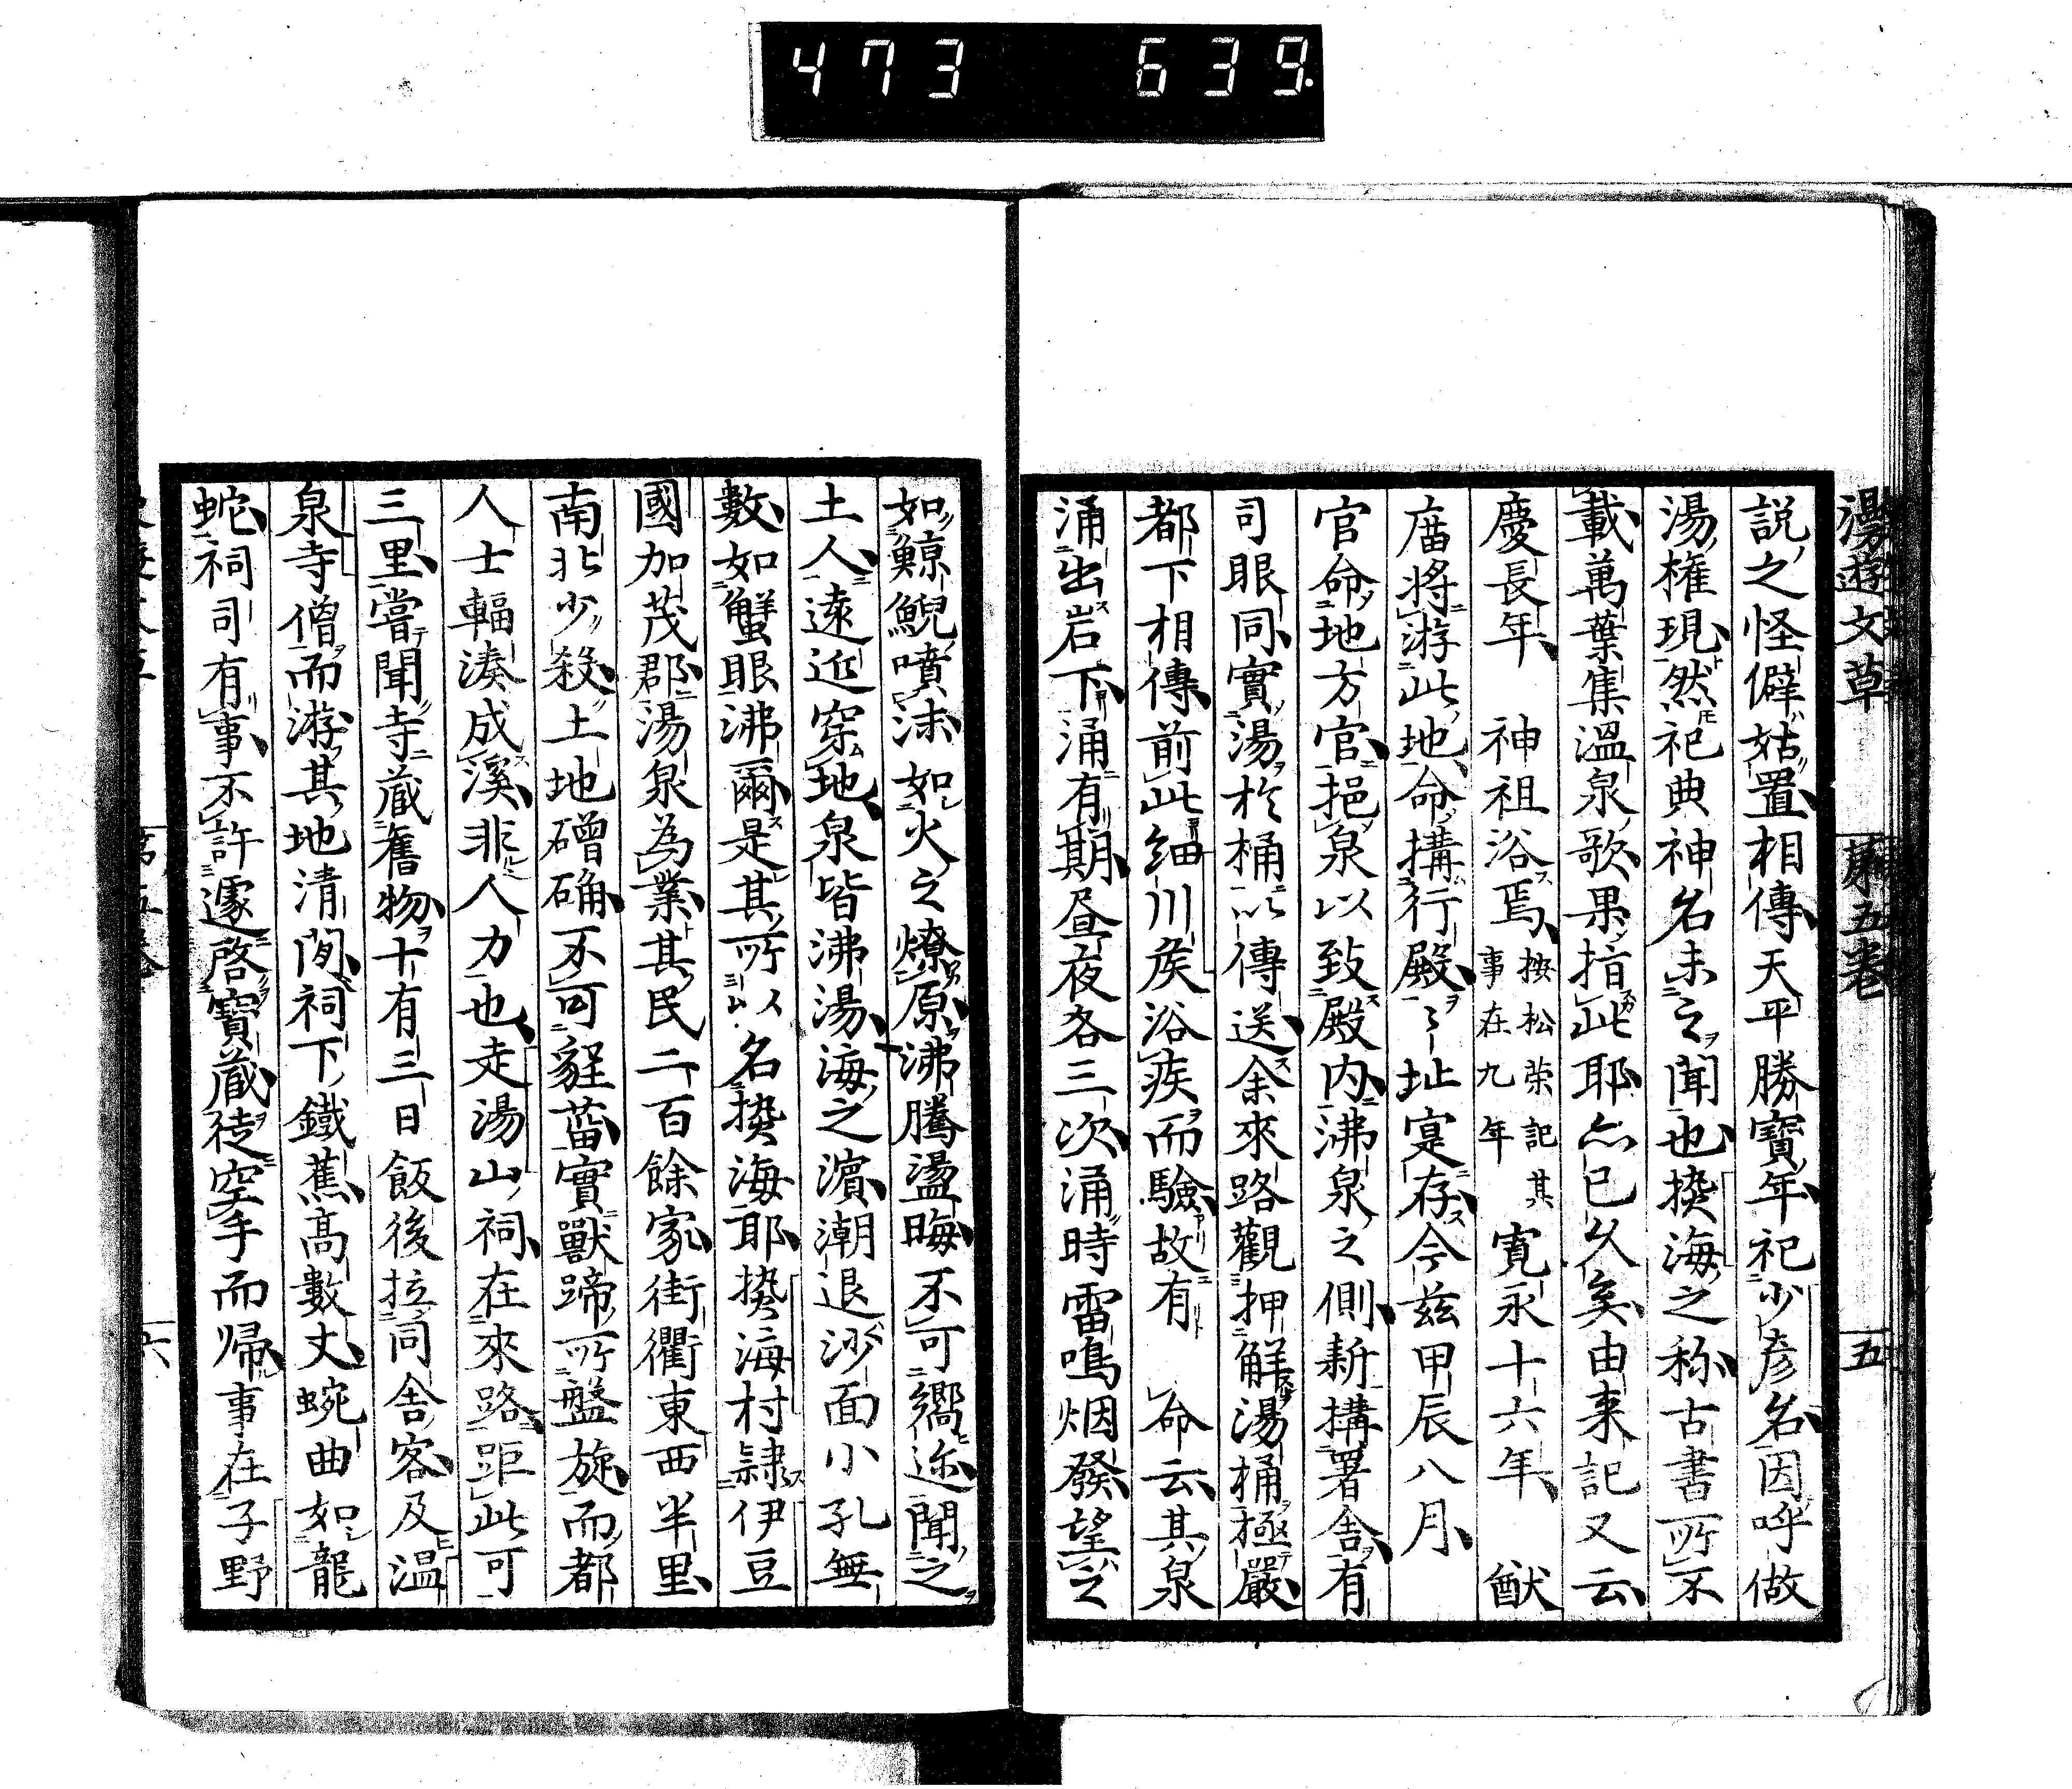 473 639
湯遊文草 第五巻 五
説之怪僻姑置相傳天平勝寶年祀少彦名因呼做
湯権現然祀典神名未之聞也㷀海之称古書所不
載萬葉集溫泉歌果指此耶亦已久矣由来記又云
慶長年 神祖浴焉按松栄記其事在九年寛永十六年 猷
廟将游此地命搆行殿〻址寔存今兹甲辰八月
官命地方官挹泉以致殿内沸泉之側新搆署舎有
司眼同實湯於桶以傳送余來路觀押解湯桶極嚴
都下相傳前此細川矦浴疾而驗故有 命云其泉
涌出岩下涌有期昼夜各三次涌時雷鳴烟發望之
如鯨鯢噴沫如火之燎原沸騰盪晦不可嚮迩聞之
土人遠近穿地泉皆沸湯海之濵潮退沙面小孔無
數如蟹眼沸爾是其所以名㷀海耶㷀海村隷伊豆
國加茂郡湯泉為業其民二百餘家街衢東西半里
南北少殺土地磳确不可貍蓄實獸蹄所盤旋而都
人士輻湊成溪非人力也走湯山祠在來路距此可
三里嘗聞寺蔵舊物十有三日飯後拉同舎客及温
泉寺僧而游其地清閒祠下鐵蕉高數丈蜿曲如龍
蛇祠司有事不許遽啓寳蔵徒空手而帰事在子野
第五巻 六